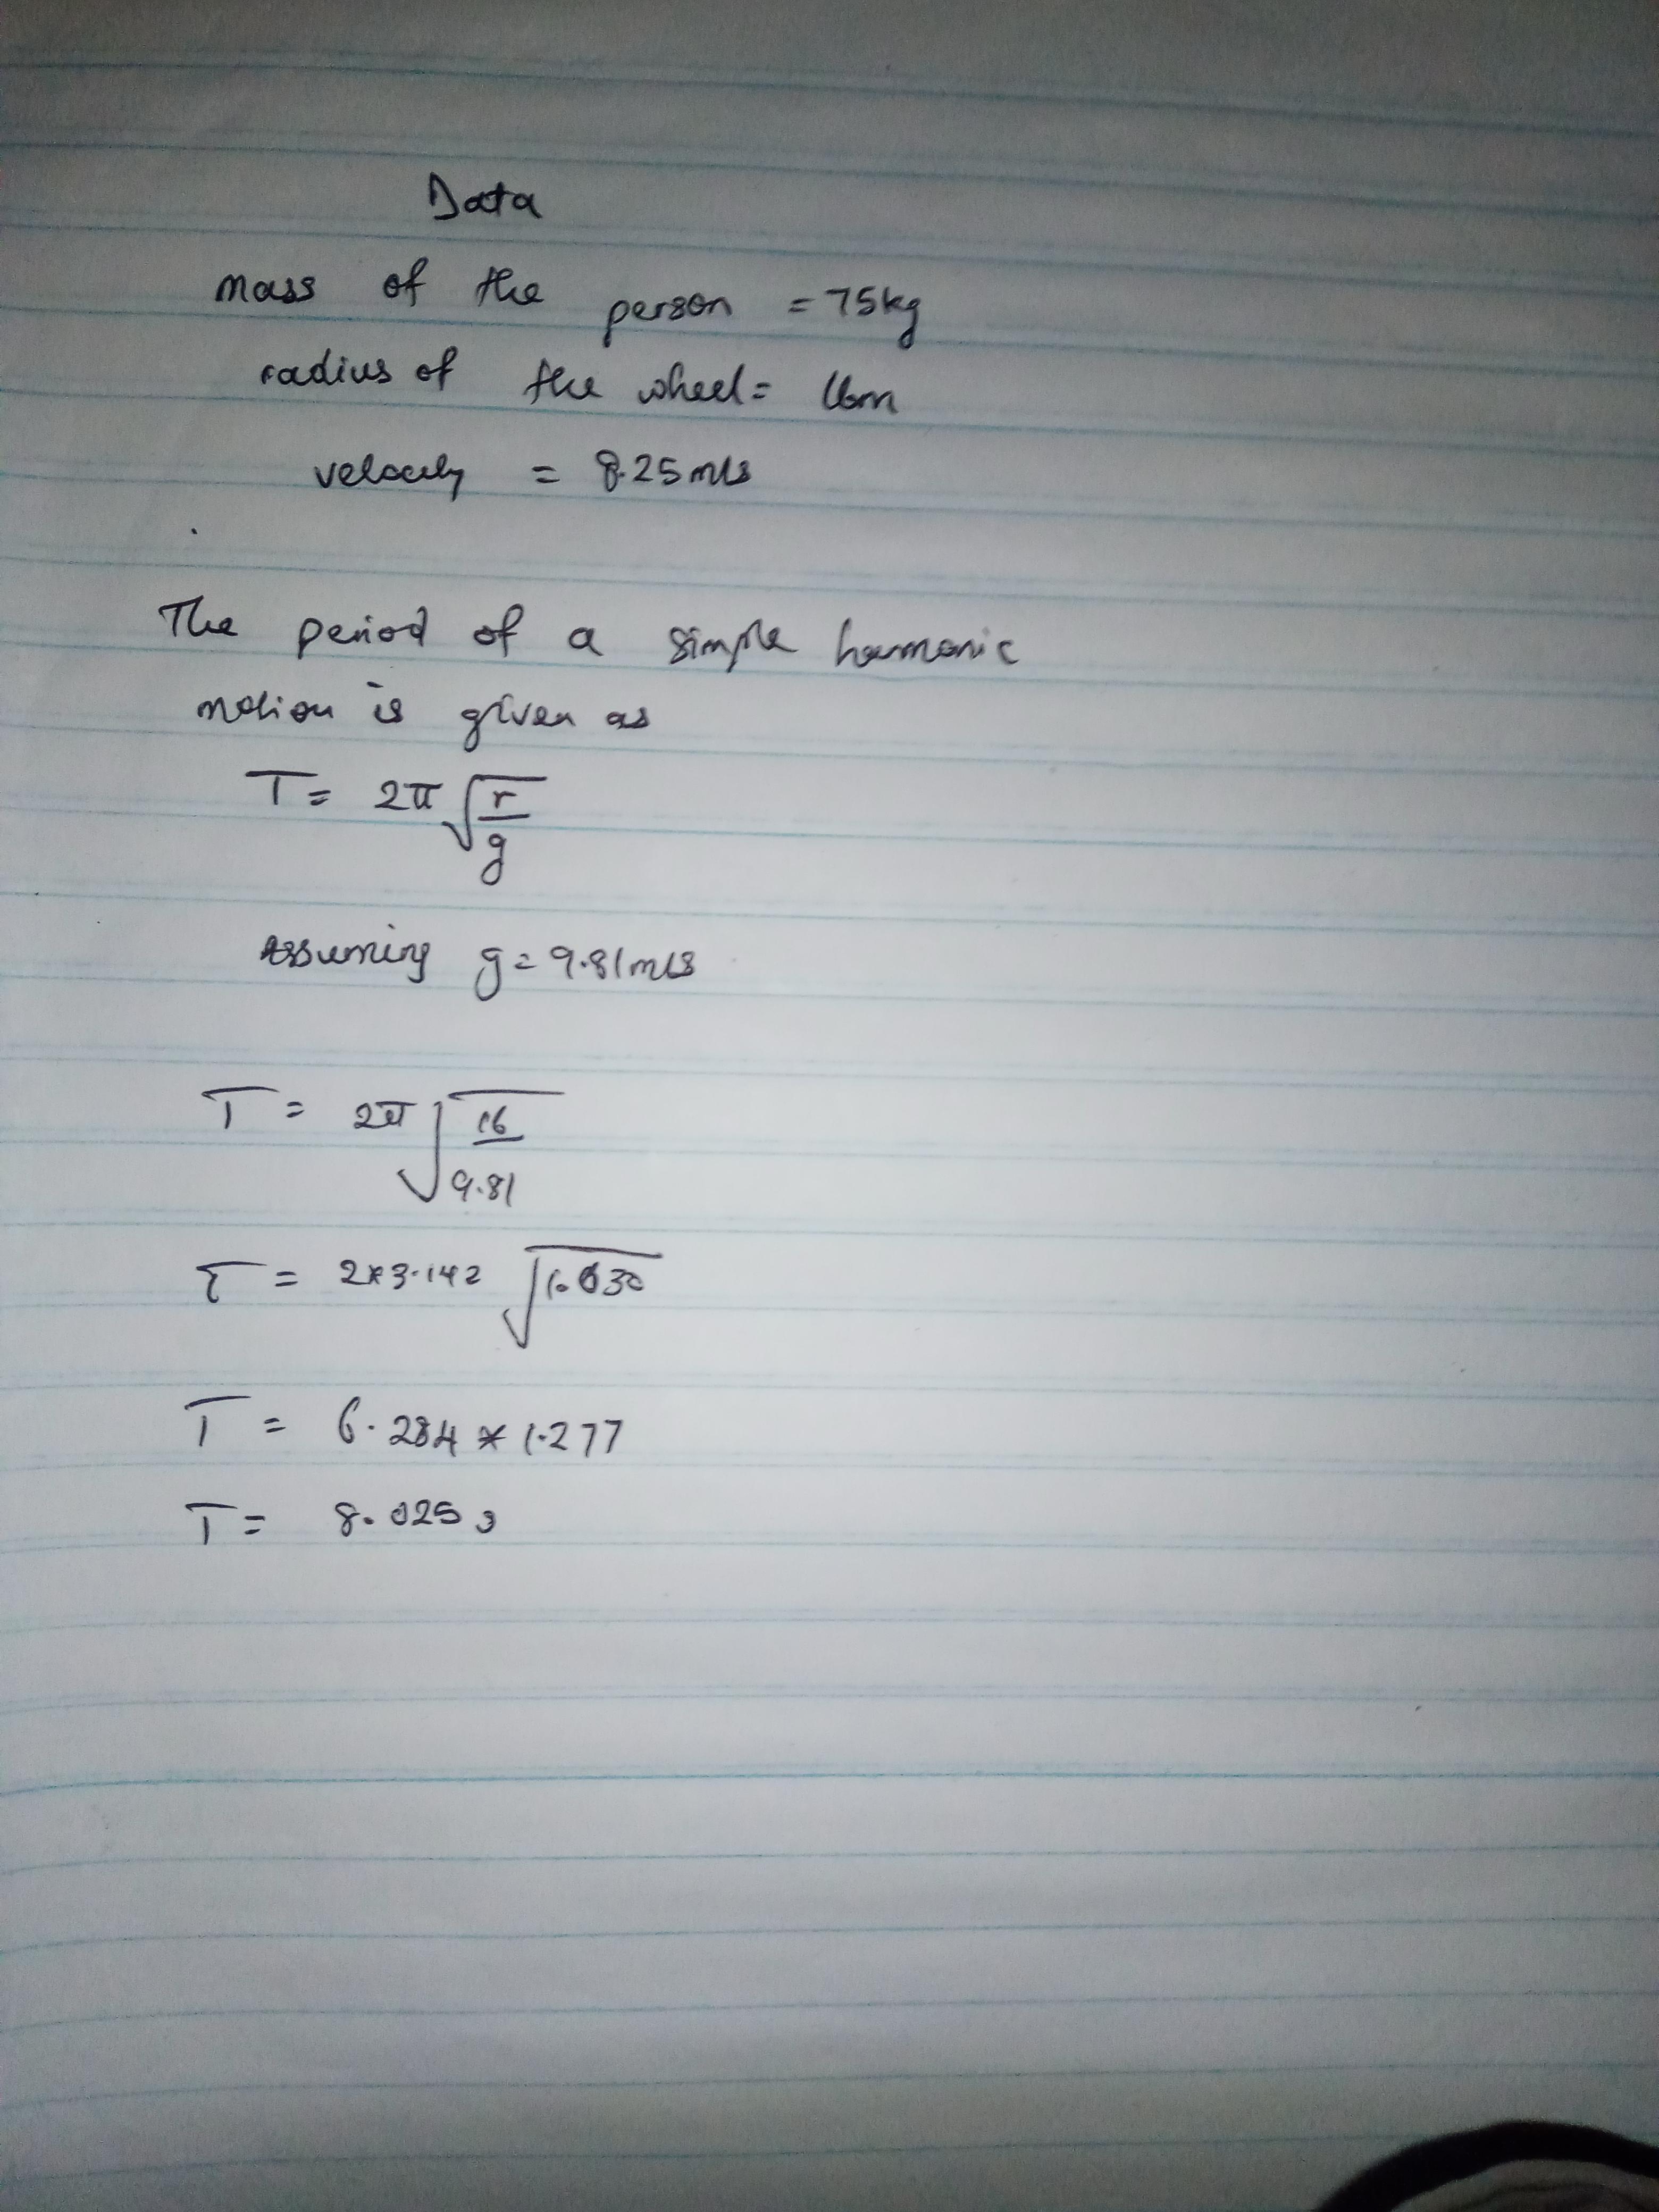 Data
mass of the person = 75kg
radius of the wheel = 16m
velocity = 8.25m/s
The period of a simple harmonic
motion is given as
T = 2π√r/g
Assuming g = 9.81m/s
T = 2π√16/9.81
T = 2*3.142 √1.630
T = 6.284 * 1.277
T = 8.025s